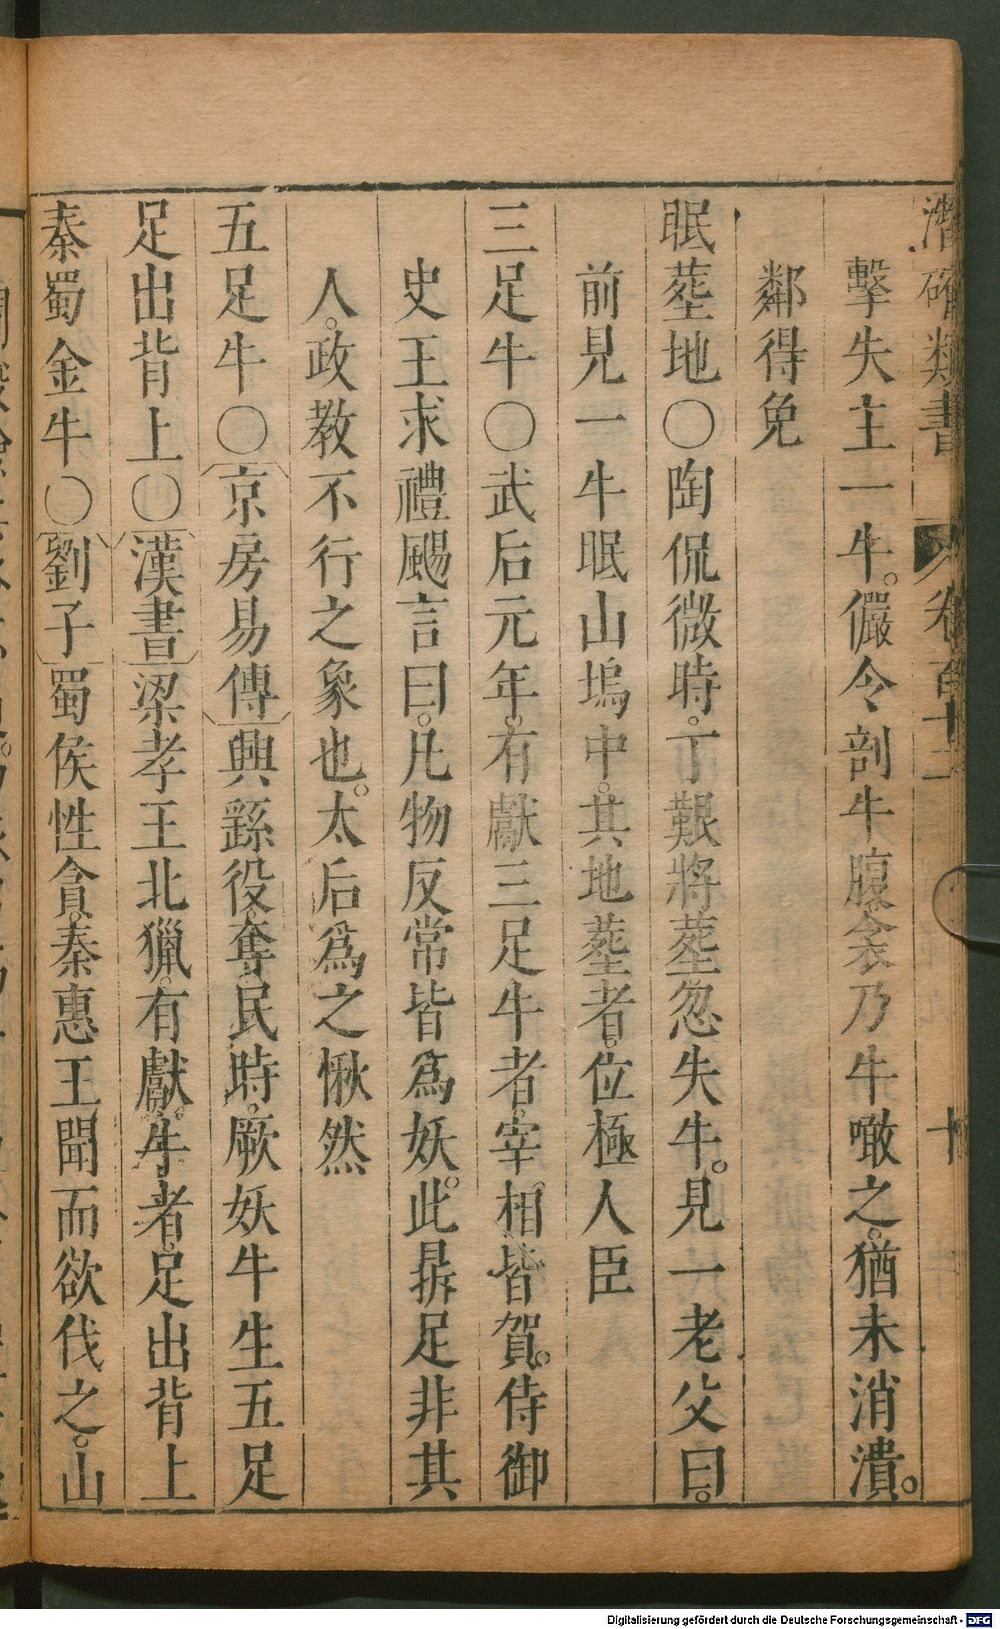 潛確類書 卷百十一 十
擊失主一牛。儼令剖牛腹。衾乃牛噉之。猶未消潰。
鄰得免
眠塟地〇陶侃微時。丁艱將塟忽失牛。見一老父曰。
前見一牛眠山塢中。其地塟者。位極人臣
三足牛〇武后元年。有獻三足牛者。宰相皆賀。侍御
史王求禮颺言曰。凡物反常皆爲妖。此鼎足非其
人。政教不行之象也。太后爲之愀然
五足牛〇京房易傳興繇役。奪民時。厥妖牛生五足
足出背上〇漢書梁孝王北獵。有獻牛者。足出背上
秦蜀金牛〇劉子蜀侯性貪。秦惠王聞而欲伐之。山
Digitalisierung gefördert durch die Deutsche Forschungsgemeinschaft - DFG